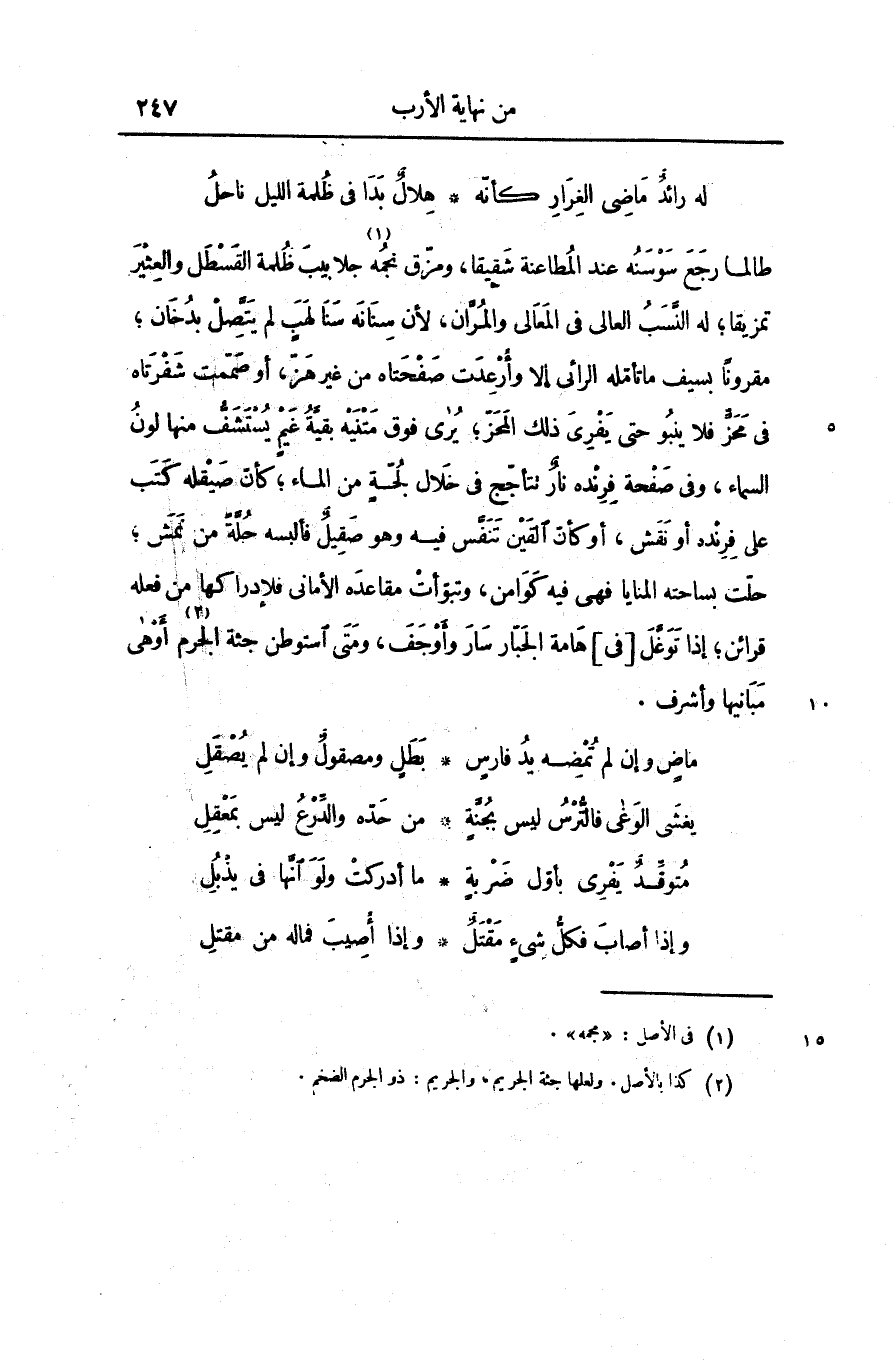 من نهاية الأرب ٢٤٧
له رائدٌ مَاضِى الغِرَارِ كأنّه * هِلالٌ بَدَا فى ظُلمة الليل ناحلُ
طالما رجَعَ سَوْسَنُه عند المُطاعنة شَقِيقا، ومزّق نجمُه (١) جلابيبَ ظُلمة القَسْطَل والعِثْيَر
تمزيقا؛ له النَّسَبُ العالى فى المَعَالى والمُرَّان، لأن سِنَانَه سَنَا لهَبٍ لم يَتَّصِلْ بدُخَان؛
مقرونًا بسيف ماتأمّله الرائى إلا وأُرْعِدَت صَفْحتاه من غير هَزّ، أو صَمّمت شَفْرَتاه
فى مَحَزٍّ فلا ينبُو حتى يَفْرِىَ ذلك المَحَزّ؛ يُرٰى فوق مَتْنَيْه بقيَّةُ غَيْمٍ يُسْتَشَفُّ منها لونُ ٥
السماء، وفى صَفْحة فِرِنْده نارٌ تتأجّج فى خلال لُجّةٍ من الماء؛ كأن صَيْقله كَتَب
على فِرِنْده أو نَقَش، أو كأن ٱلقَيْن تَنَفَّس فيه وهو صَقِيلٌ فألبسه حُلَّةً من نَمَش؛
حلّت بساحته المنايا فهى فيه كَوَامن، وتبوّأتْ مقاعدَه الأمانى فلإدراكها من فعله
قرائن؛ إذا تَوَغَّلَ [فى] هَامة الجَبّار سَارَ وأَوْجَفَ، ومَتَى ٱستوطن جثة الجرم (٢) أَوْهٰى
مَبَانيها وأشرف . ١٠
ماضٍ و إن لم تُمْضِه يدُ فارسٍ * بَطَلٍ ومصقولٌ وإن لم يُصْقَلِ
يغشَى الوَغٰى فالتُّرْسُ ليس بجُنَّةٍ * من حَدّه والدِّرْعُ ليس بمَعْقِلِ
مُتوقِّدٌ يَفْرِى بأوّل ضَرْبةٍ * ما أدركتْ ولَوَ ٱنَّها فى يذْبُلِ
و إذا أصابَ فكلُّ شىءٍ مَقْتَلٌ * و إذا أُصِيبَ فماله من مقتلِ
(١) فى الأصل : «مجمه» . ١٥
(٢) كذا بالأصل. ولعلها جثة الجريم، والجريم : ذو الجرم الضخم .